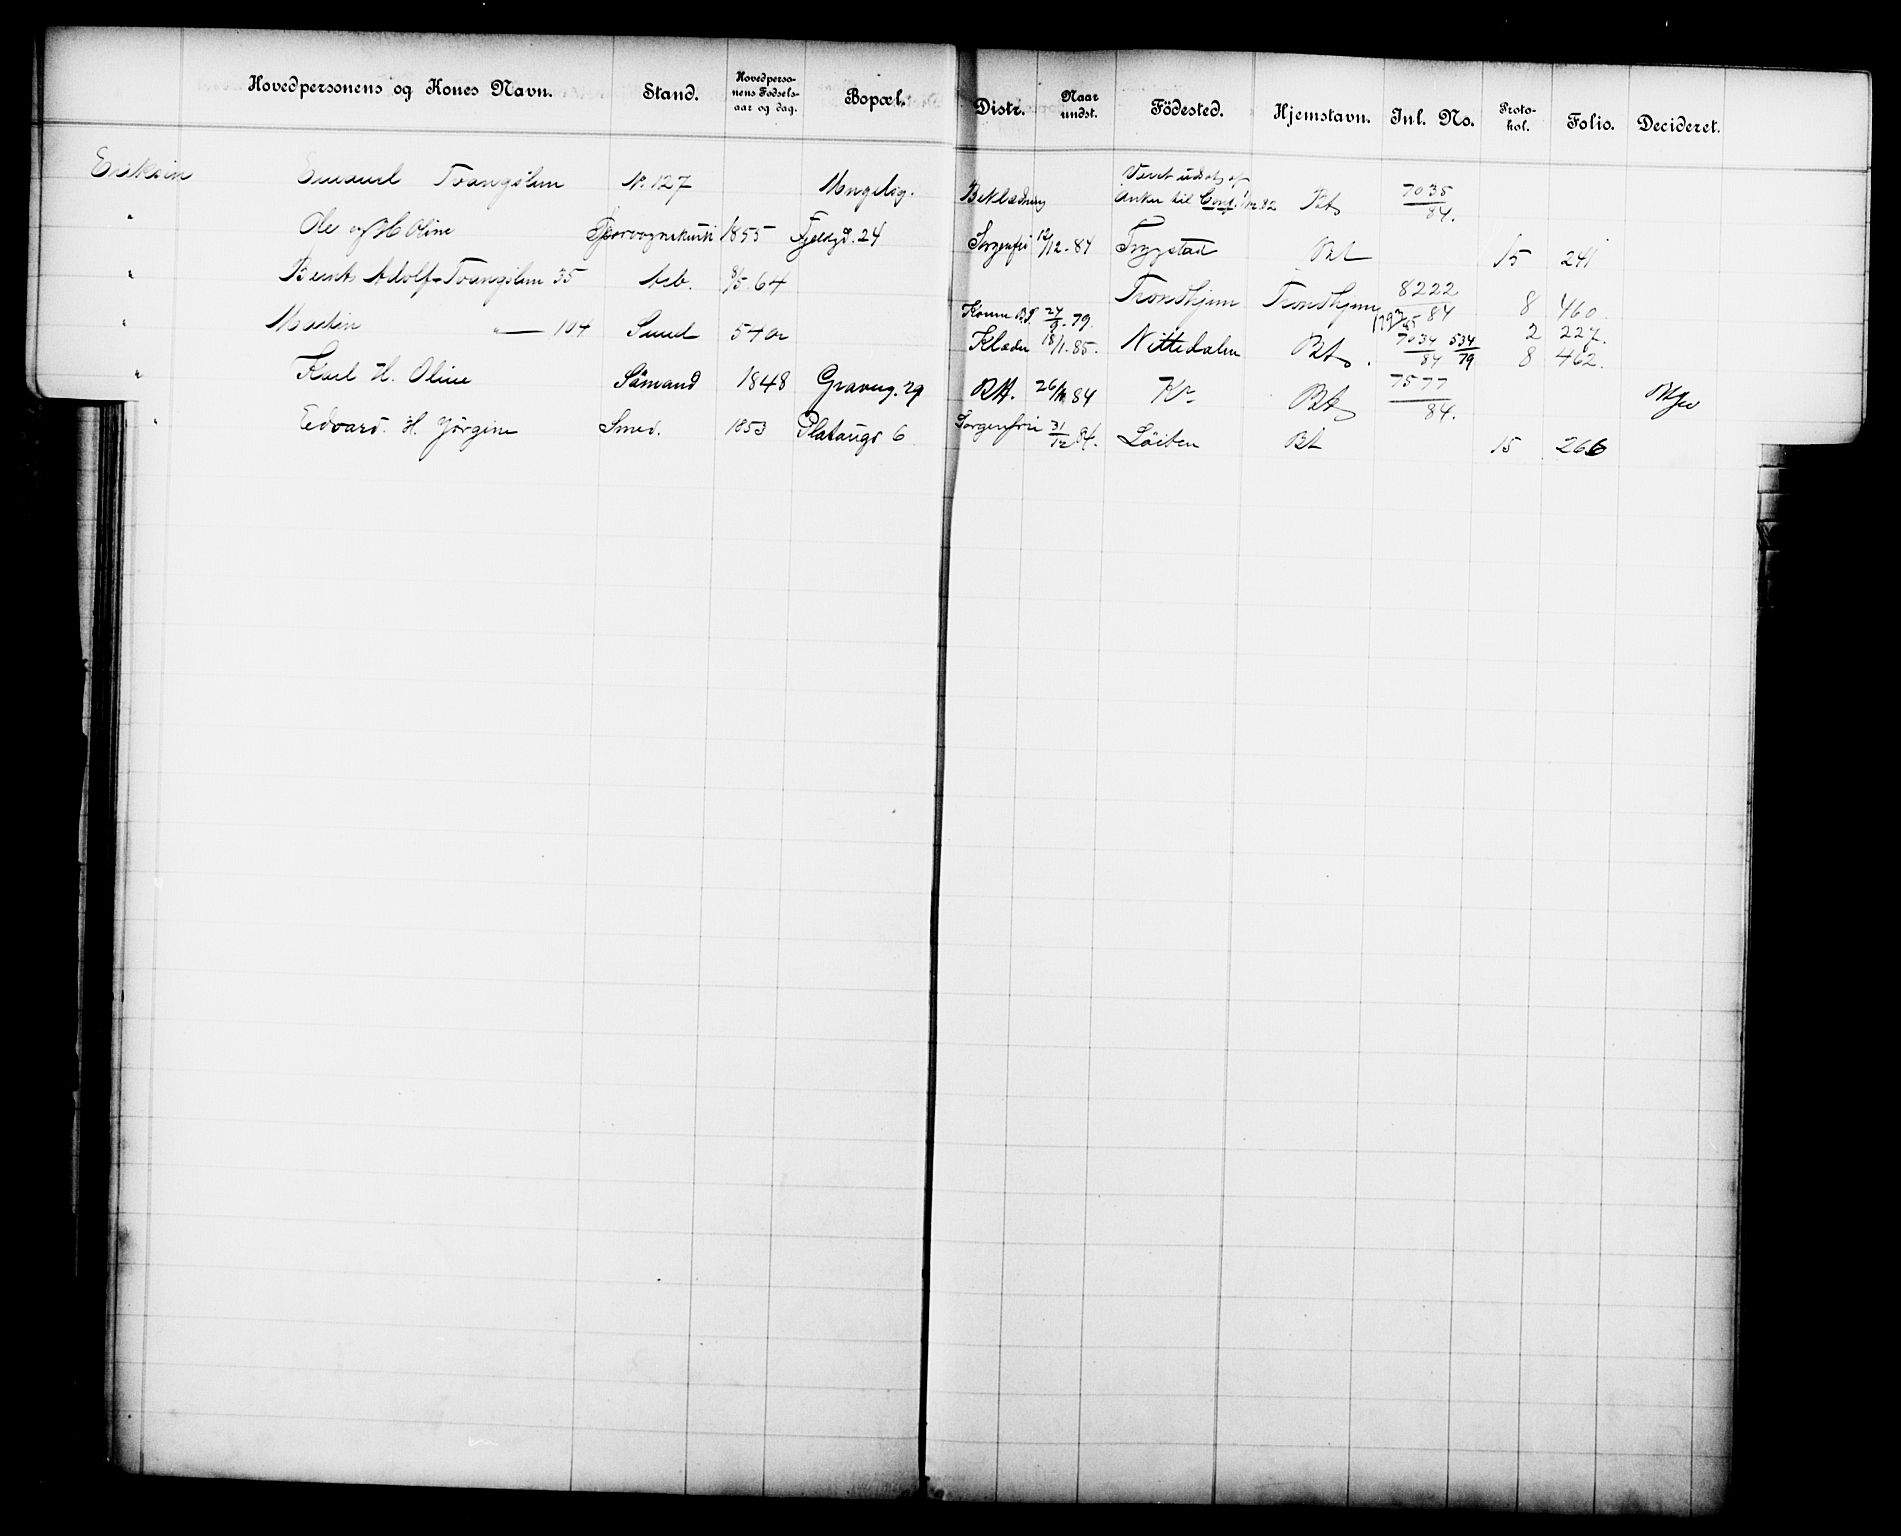 Hovedpersonens og Kones Navn. Stand. Hovedperso-nens Fodsels-aar og dag. Bopæl. Distr. Naar undst. Födested. Hjemstavn. Inl. No. Proto-kol. Folio. Decideret.
Eriksen Edvard Tvangslem No. 127 Ungelig. Beklædning Været udsat af Anker til Conf. Bt 7035/84.
" Ole og H Oline Sporvognskusk 1855 Fjeldgd. 24 Sorgenfri 12/12-84 Trygstad Bt 15 241
" Bernt Adolf Tvangslem 35 Arb. 8/5-64 Trondhjem Trondhjem 8222/84 8 460.
" Martin " 104 Smed 54 Aar Komm B.f. 27/9-79. Klæder 18/1-85. Nittedalen Bt. 7034/84 534/79 2 227. 8 462.
" Karl H. Oline Sömand 1848 Graveg. 29 Bt. 26/11 84 Kr. Bt 7577/84.
" Edvard. H. Jörgine Smed. 1853 Platougd 6 Sorgenfri 31/12 84. Löiten Bt 15 266